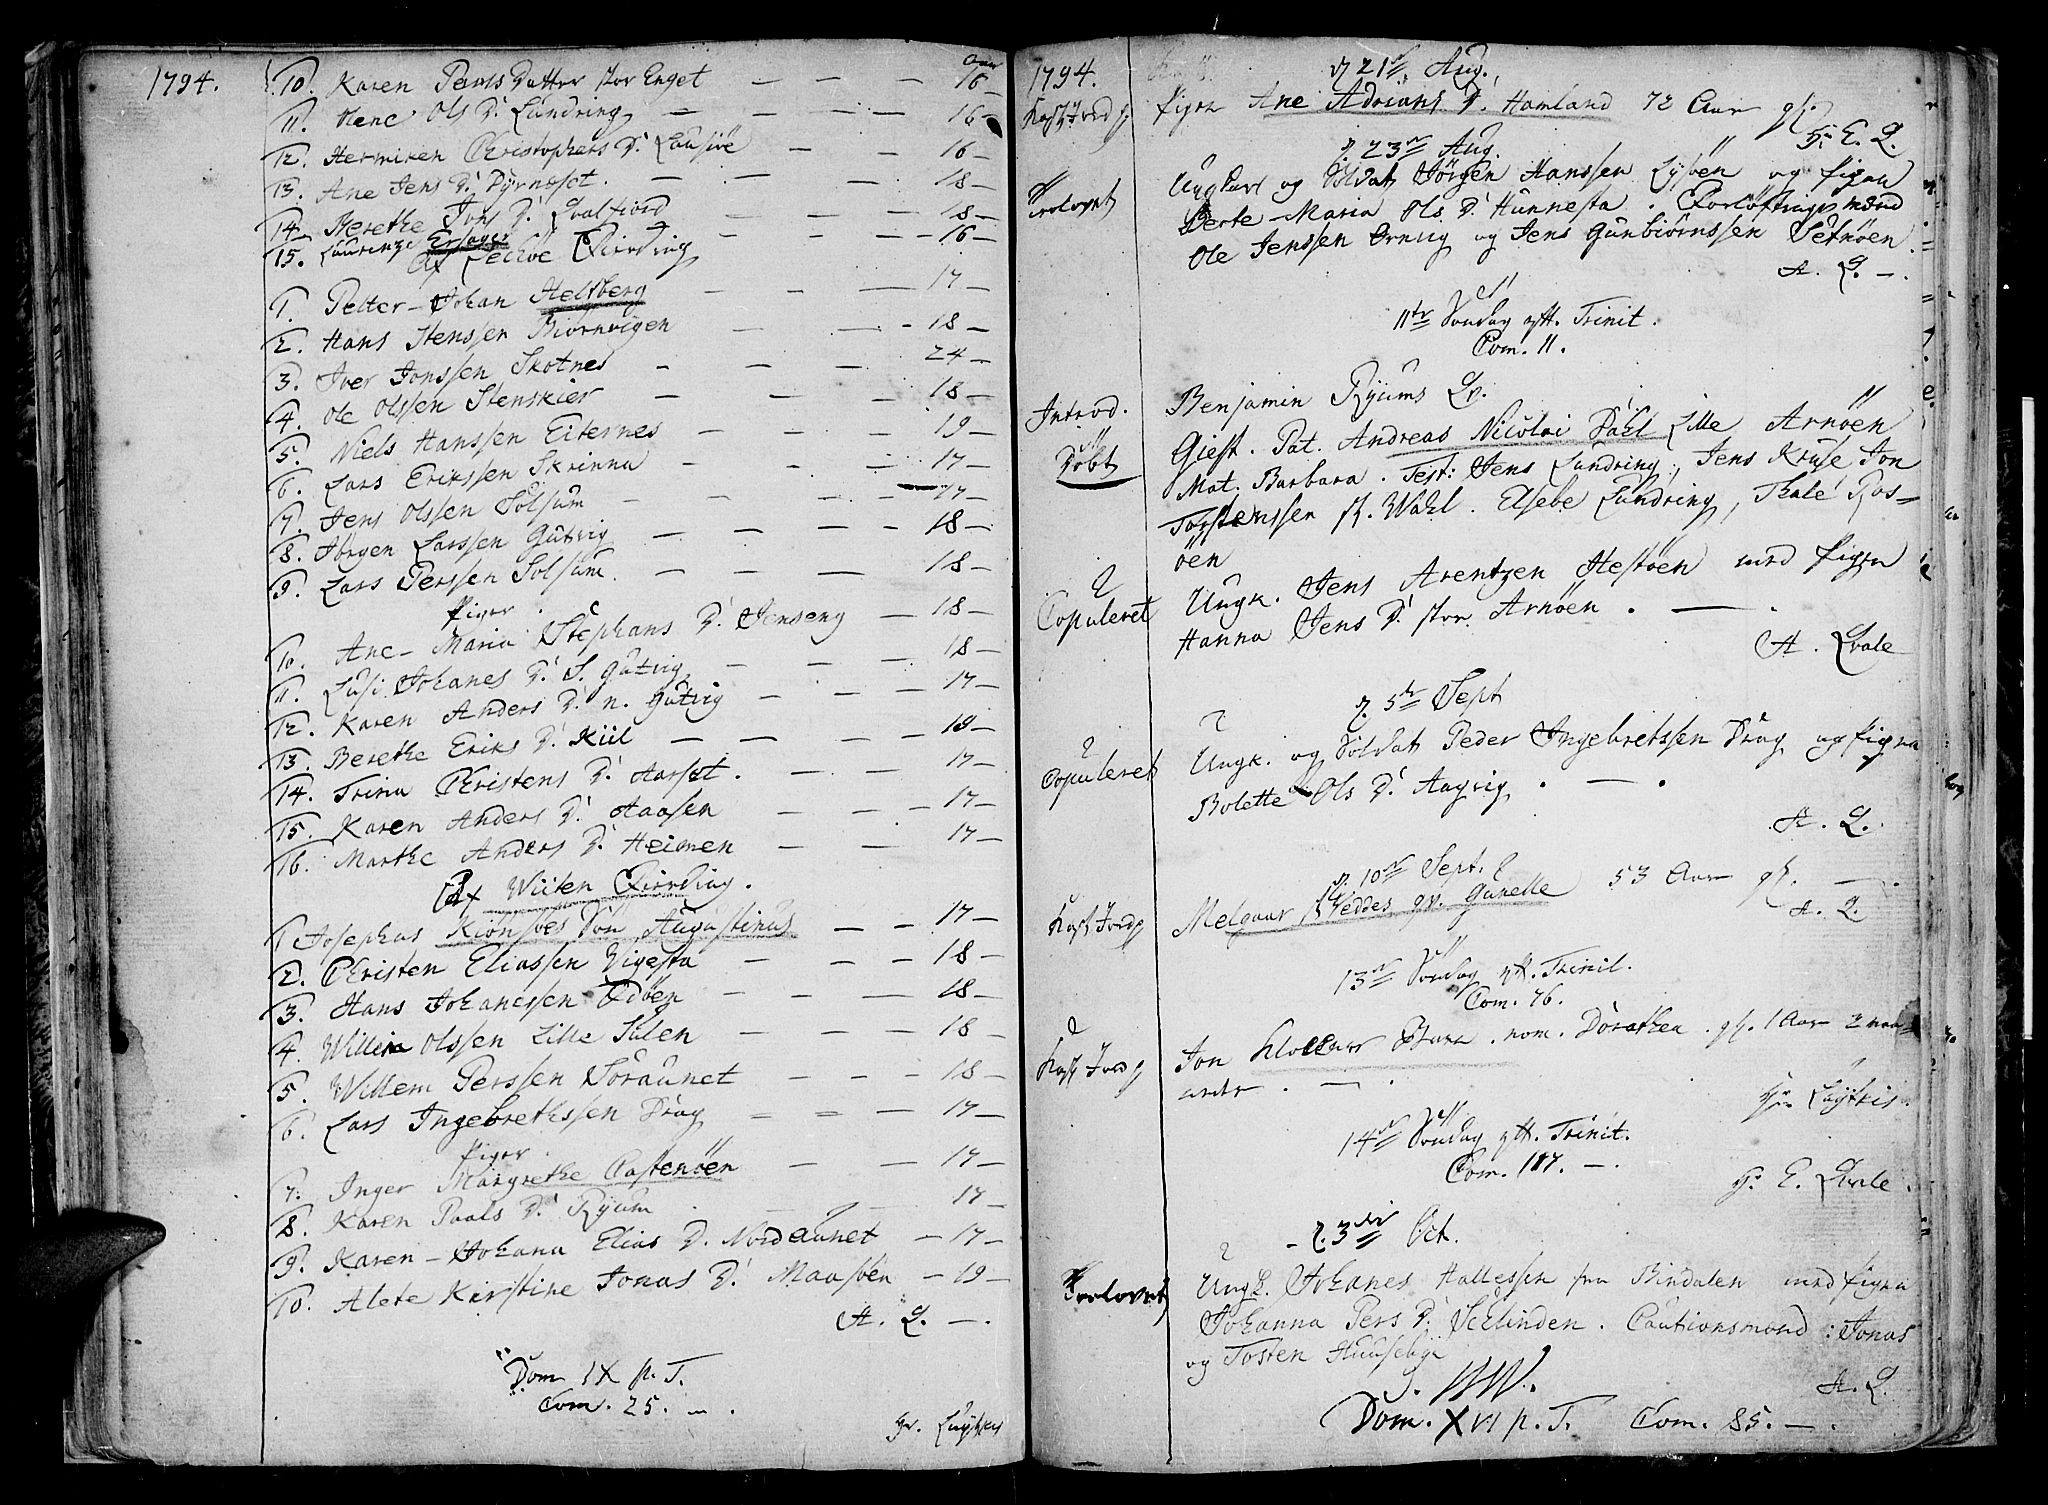 1794.
Aar
10. Karen Peers Datter stor Enget — — — 16 —
11. Lene Ols D. Lundring — — — 16 —
12. Hermiken Christophers D. — — 16 —
13. Ane Jens D. Dyrnesset. — — — 18 —
14. Berethe Jons D. Qvalfiord — — — 18 —
15. Laurenze — — — 16 —
Af Lechöe Fierding
1. Petter-Johan Heltberg — — — 17 —
2. Hans Stenssen Biörnvigen — — — 18 —
3. Iver Jonssen Skotnes — — — 24 —
4. Ole Olssen Stenskier — — — 18 —
5. Niels Hanssen Eiternes — — — 19 —
6. Lars Erikssen Skrinna — — — 17 —
7. Jens Olssen Solsum — — — 17 —
8. Jörgen Larssen Gutvig — — — 18 —
9. Lars Perssen Solsum. — — — 18 —
Piger.
10. Ane-Maria Stephans D. Jenseng — 18 —
11. Lusi Johanes D. S. Gutvig — — — 18 —
12. Karen Anders D. n. Gutvig — — — 17 —
13. Berethe Eriks D. Kiil — — — 18 —
14. Trina Christens D. Aarset. — — 17 —
15. Karen Anders D. Aaasen — — — 17 —
16. Marthe Anders D. Heimen — — 17 —
Af Wiiten Fierding.
1 Josephus Augustinus — — 17 —
2. Christen Eliassen Vigesta — — — 18 —
3. Hans Johanessen — — — 18 —
4. Willem Olssen Lille Sulen — — — 18 —
5. Willem Perssen Soraunet — — — 18 —
6. Lars Ingebrethssen Drag — — — 17 —
Piger.
7. Inger Margrethe — — 17 —
8. Karen Paals D. Ryum — — — 17 —
9. Karen-Johana Elias D. Nordaunet — 17 —
10. Alete Kirstine Jonas D. Maasöen — 19 —
A. Q. —.
Dom IX p. T.
Com. 25. —.
Hr. Luytkis
1794.
d. 21de Aug.
Kast Jord p. Pigen Ane Adrians D. Hamland 72 Aar gl.
Hr. E. Q.
d. 23de Aug.
Trolovet Ungkarl og Soldat Jörgen Hanssen Lysöen og Pigen
Berte-Maria Ols D. Hunnesta. Forlöftningsmænd
Ole Jenssen Ornvig og Jens Gunbiörnssen Setnöen.
A. Q. —.
11te Söndag eft. Trinit.
Com. 11.
Introd. Benjamin Ryums Qv.
Döbt Giest. Pat. Andreas Nicolai Dahl Lille Arnöen
Mat. Barbara. Test: Jens Lundring, Jens Kruse Jon
Torstenssen Wahl. Elsebe Lundring, Thale Ros-
öen
Copuleret Ungk. Jens Arentzen Hestöen med Pigen
Hanna Jens D. stor Arnöen. —.
A. Qvale
d. 5te Sept
Copuleret Ungk. og Soldat Peder Ingebretssen Drag og Pigen
Bolette Ols D. Aagvig. —.
A. Q.
d. 10de Sept.
Kast Jord p Melgaar qv. Gunelle 53 Aar gl. —.
A. Q.
13de Söndag eft. Trinit.
Com. 76.
Kast Jord p Jon Barn. nom. Dorothea. gl. 1 Aar 2 maa-
neder. —.
Hr. Luytkis.
14de Söndag eft. Trinit.
Com. 107. —.
Hr. E. Qvale.
— d. 3die Oct.
Trolovet Ungk. Johanes Hallessen fra Bindalen med Pigen
Johanna Pers D. Cautionsmænd: Jonas
og Tosten
A. Q.
Dom. XVI p. T. Com. 85. —.